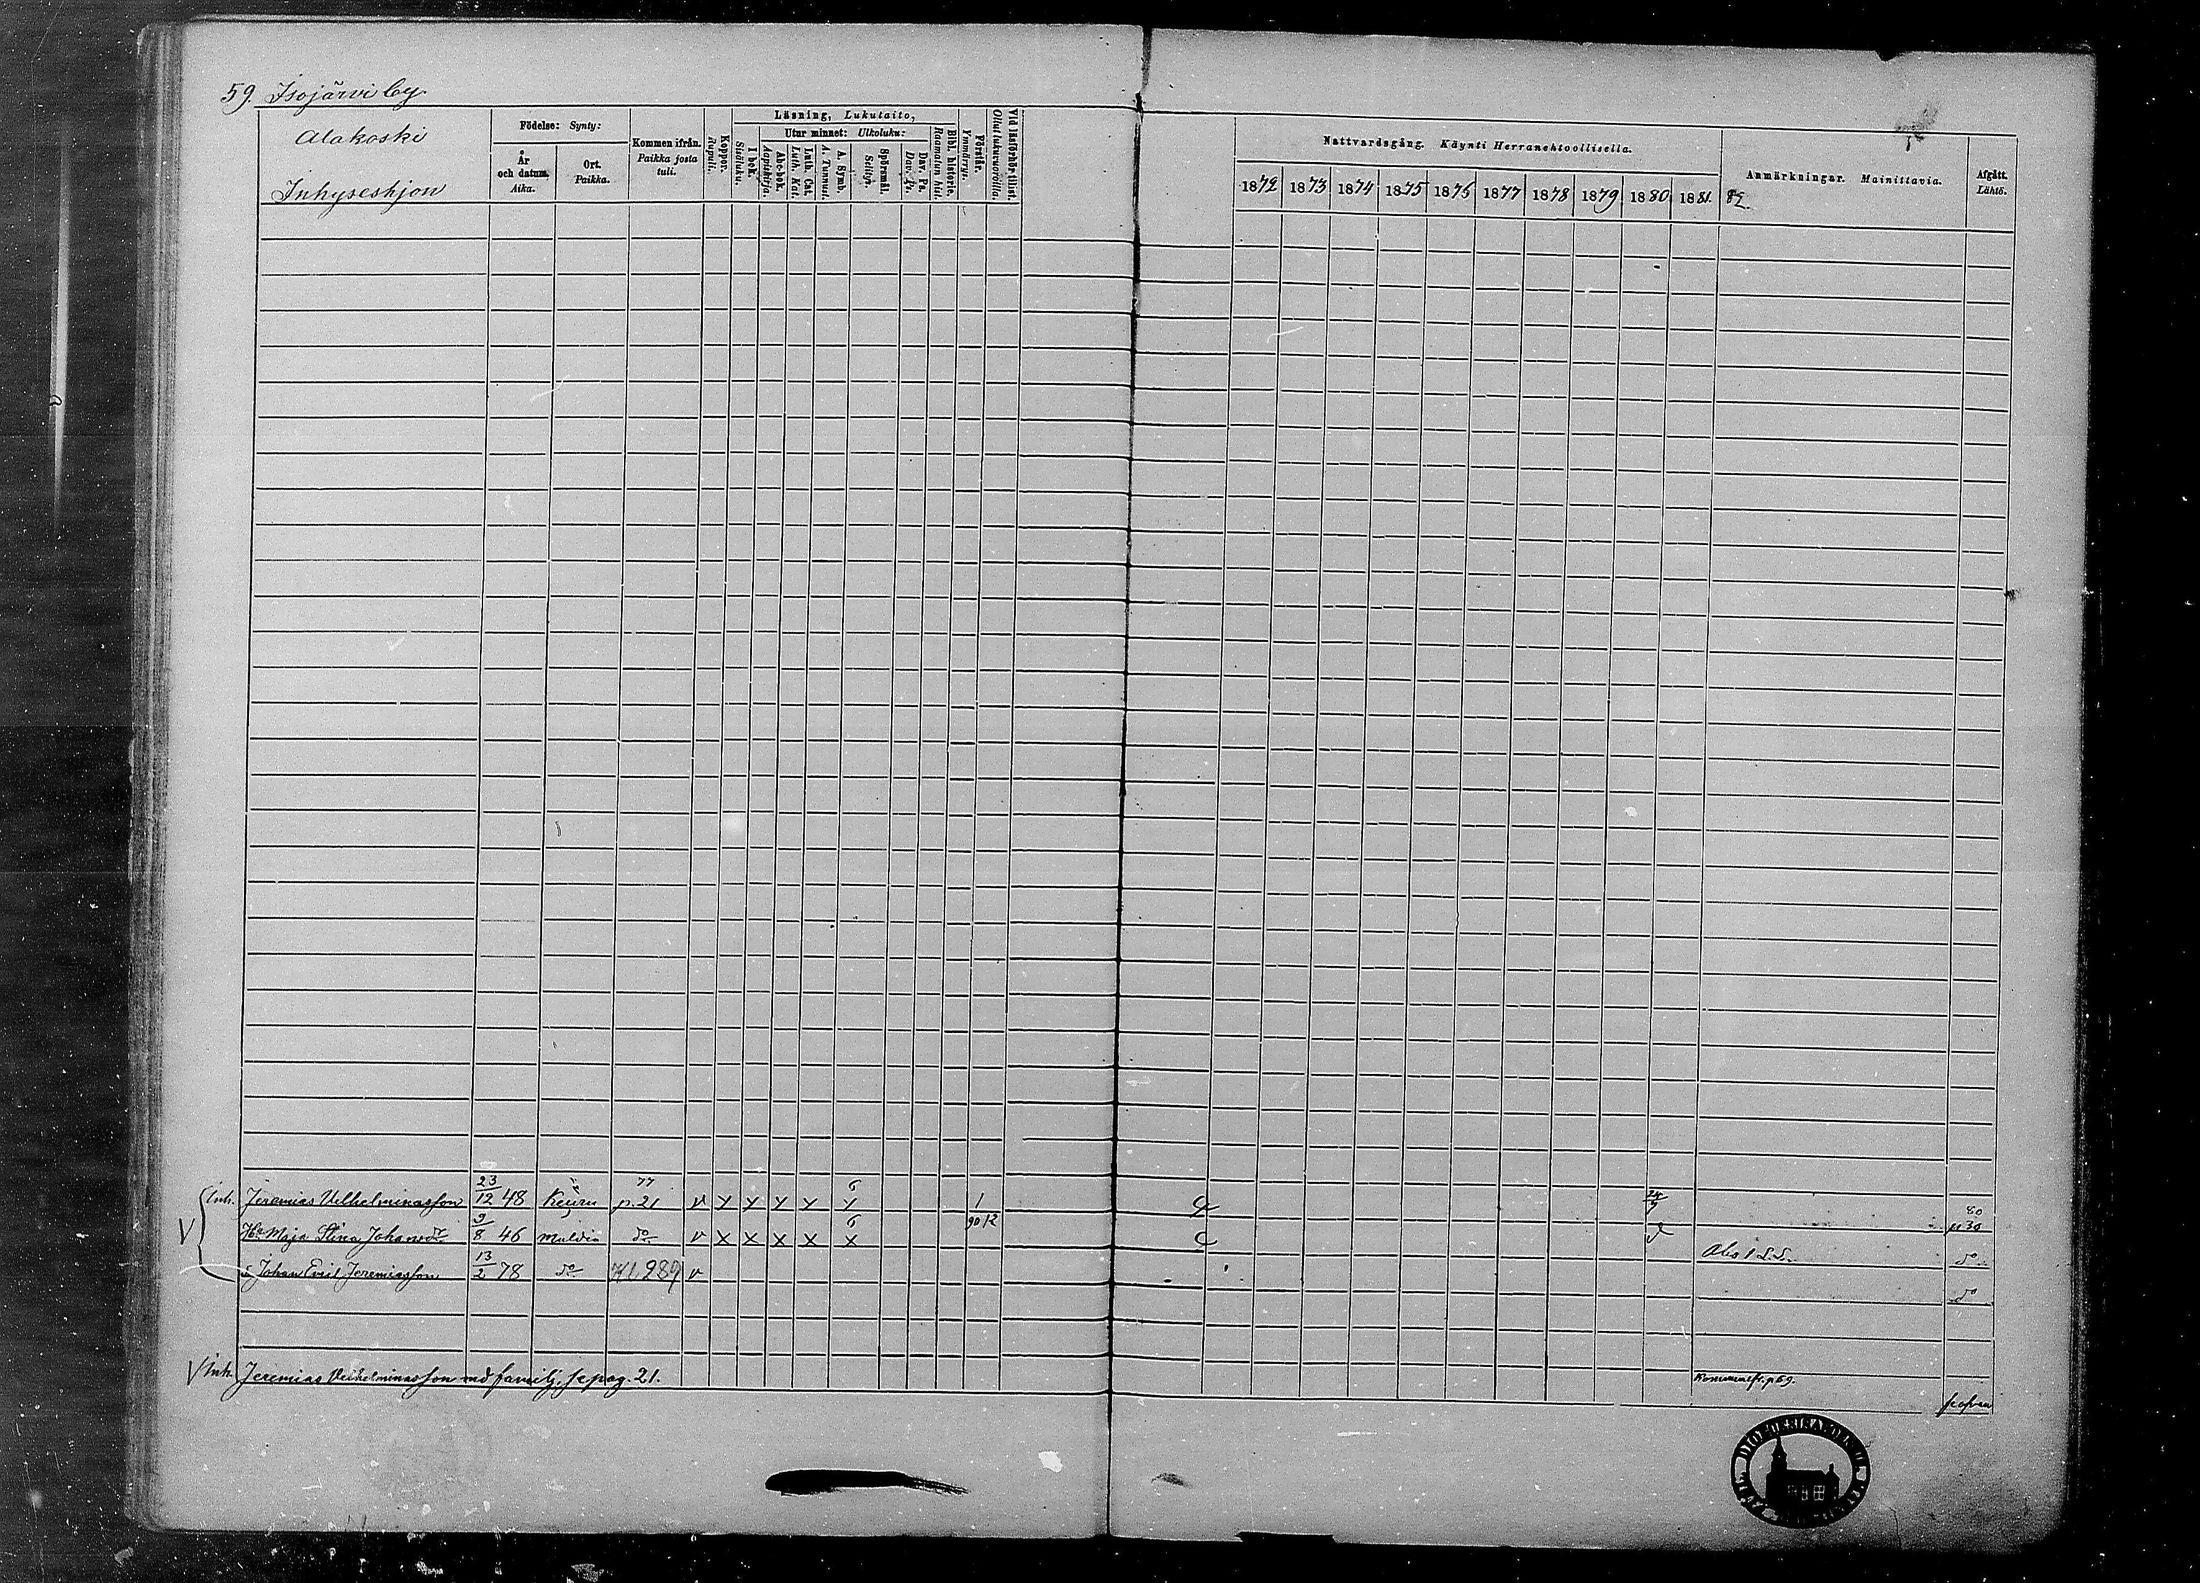 59. Isojärvi by
Alakoski
Inhyseshjon
Födelse: Synty:
År och datum. Aika.
Ort. Paikka.
Kommen ifrån. Paikka josta tuli.
Koppor. Rupuli.
Läsning, Lukutaito,
I bok. Sisäluku.
Utur minnet: Ulkoluku:
Abc-bok. Aapiskirja.
Luth. Cat. Luth. Kat.
A. Symb. A. Tunnust.
Spörsmål. Selityh.
Dav. Ps. Dav. Ps.
Bibl. historie. Raamatun hist.
Förstår. Ymmärrys.
Vid läsförhör tillst. Ollut lukuvuoroilla.
Nattvardsgång. Käynti Herranehtoollisella.
1872 1873 1874 1875 1876 1877 1878 1879 1880 1881.
Anmärkningar. Mainittavia.
82.
Afgått. Lähtö.
Inh. Jeremias Vilhelminasson 23/12 48 Keuru 77 p. 21 v x x x x x 6 1 80
Hu Maja Stina Johansdr 9/8 46 Multia do v x x x x x 6 90 12 p 30
Abs 1 S.S. do
s. Johan Emil Jeremiasson 13/2 78 do 989 v
do
V Inh. Jeremias Vilhelminasson md familj, se pag. 21.
Kommne fr. p 59.